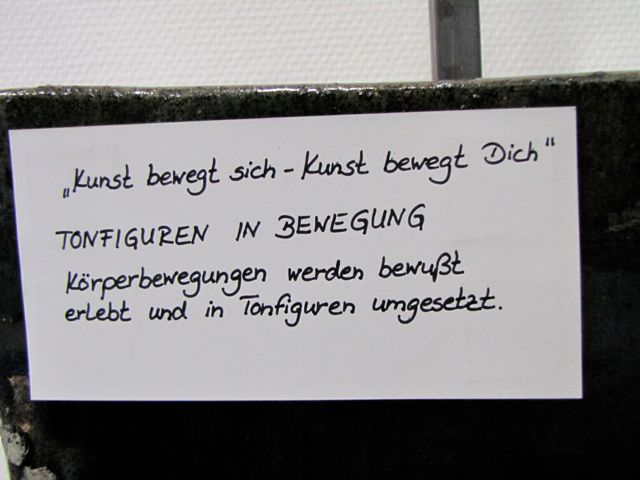 „Kunst bewegt sich – Kunst bewegt Dich“
TONFIGUREN IN BEWEGUNG
Körperbewegungen werden bewußt
erlebt und in Tonfiguren umgesetzt.